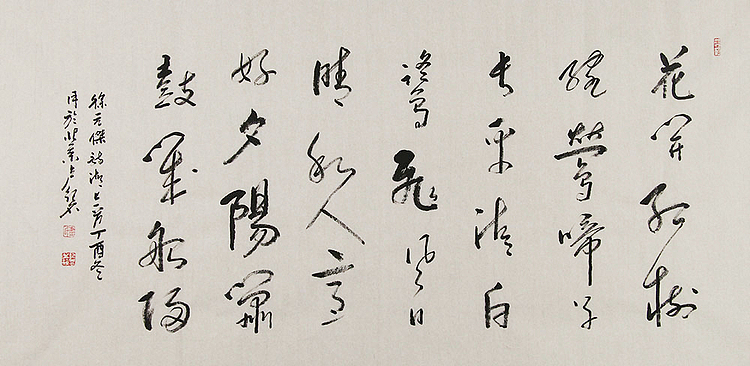 花開紅樹
亂鶯啼草
長平湖白
鷺飛風日
晴和人意
好夕陽簫
鼓幾船歸
徐元傑詩湖上一首丁酉冬
月於北京